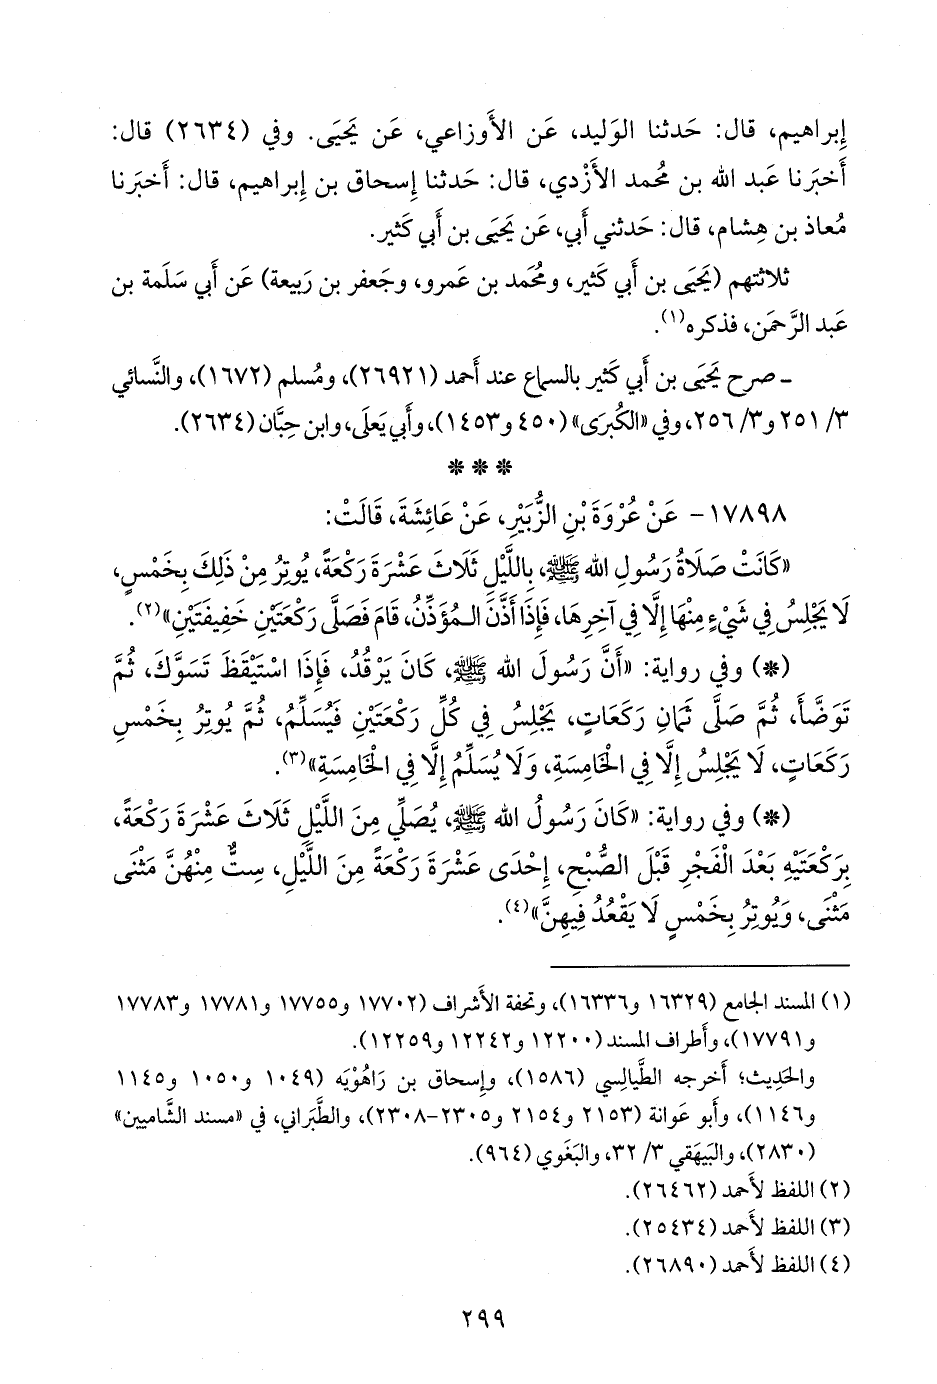 إبراهيم، قال: حَدثنا الوَليد، عَن الأَوزاعي، عَن يَحيَى. وفي (٢٦٣٤) قال:
أَخبَرنا عَبد الله بن مُحمد الأَزْدي، قال: حَدثنا إِسحاق بن إِبراهيم، قال: أَخبَرنا
مُعاذ بن هِشام، قال: حَدثني أَبي، عَن يَحيَى بن أَبي كَثير.
ثلاثتهم (يَحيَى بن أَبي كَثير، ومُحمد بن عَمرو، وجَعفر بن رَبيعة) عَن أَبي سَلَمة بن
عَبد الرَّحمَن، فذكره(١).
ـ صرح يَحيَى بن أَبي كَثير بالسماع عند أَحمد (٢٦٩٢١)، ومُسلم (١٦٧٢)، والنَّسائي
٣/ ٢٥١ و٣/ ٢٥٦، وفي «الكُبرَى» (٤٥٠ و١٤٥٣)، وأَبي يَعلَى، وابن حِبَّان (٢٦٣٤).
***
١٧٨٩٨- عَنْ عُرْوَةَ بْنِ الزُّبَيْرِ، عَنْ عَائِشَةَ، قَالَتْ:
«كَانَتْ صَلَاةُ رَسُولِ الله ﷺ، بِاللَّيْلِ ثَلَاثَ عَشْرَةَ رَكْعَةً، يُوتِرُ مِنْ ذَلِكَ بِخَمْسٍ،
لَا يَجْلِسُ فِي شَيْءٍ مِنْهَا إِلَّا فِي آخِرِهَا، فَإِذَا أَذَّنَ الـمُؤَذِّنُ، قَامَ فَصَلَّى رَكْعَتَيْنِ خَفِيفَتَيْنِ»(٢).
(*) وفي رواية: «أَنَّ رَسُولَ الله ﷺ، كَانَ يَرْقُدُ، فَإِذَا اسْتَيْقَظَ تَسَوَّكَ، ثُمَّ
تَوَضَّأَ، ثُمَّ صَلَّى ثَمَانِ رَكَعَاتٍ، يَجْلِسُ فِي كُلِّ رَكْعَتَيْنِ فَيُسَلِّمُ، ثُمَّ يُوتِرُ بِخَمْسِ
رَكَعَاتٍ، لَا يَجْلِسُ إِلَّا فِي الْخَامِسَةِ، وَلَا يُسَلِّمُ إِلَّا فِي الْخَامِسَةِ»(٣).
(*) وفي رواية: «كَانَ رَسُولُ الله ﷺ، يُصَلِّي مِنَ اللَّيْلِ ثَلَاثَ عَشْرَةَ رَكْعَةً،
بِرَكْعَتَيْهِ بَعْدَ الْفَجْرِ قَبْلَ الصُّبْحِ، إِحْدَى عَشْرَةَ رَكْعَةً مِنَ اللَّيْلِ، سِتٌّ مِنْهُنَّ مَثْنَى
مَثْنَى، وَيُوتِرُ بِخَمْسٍ لَا يَقْعُدُ فِيهِنَّ»(٤).
(١) المسند الجامع (١٦٣٢٩ و١٦٣٣٦)، وتحفة الأَشراف (١٧٧٠٢ و١٧٧٥٥ و١٧٧٨١ و١٧٧٨٣
و١٧٧٩١)، وأَطراف المسند (١٢٢٠٠ و١٢٢٤٢ و١٢٢٥٩).
والحَدِيث؛ أَخرجه الطَّيالِسي (١٥٨٦)، وإِسحاق بن رَاهُوْيَه (١٠٤٩ و١٠٥٠ و١١٤٥
و١١٤٦)، وأَبو عَوانة (٢١٥٣ و٢١٥٤ و٢٣٠٥-٢٣٠٨)، والطَّبَراني، في «مسند الشَّاميين»
(٢٨٣٠)، والبَيهَقي ٣/ ٣٢، والبَغَوي (٩٦٤).
(٢) اللفظ لأَحمد (٢٦٤٦٢).
(٣) اللفظ لأَحمد (٢٥٤٣٤).
(٤) اللفظ لأَحمد (٢٦٨٩٠).
٢٩٩